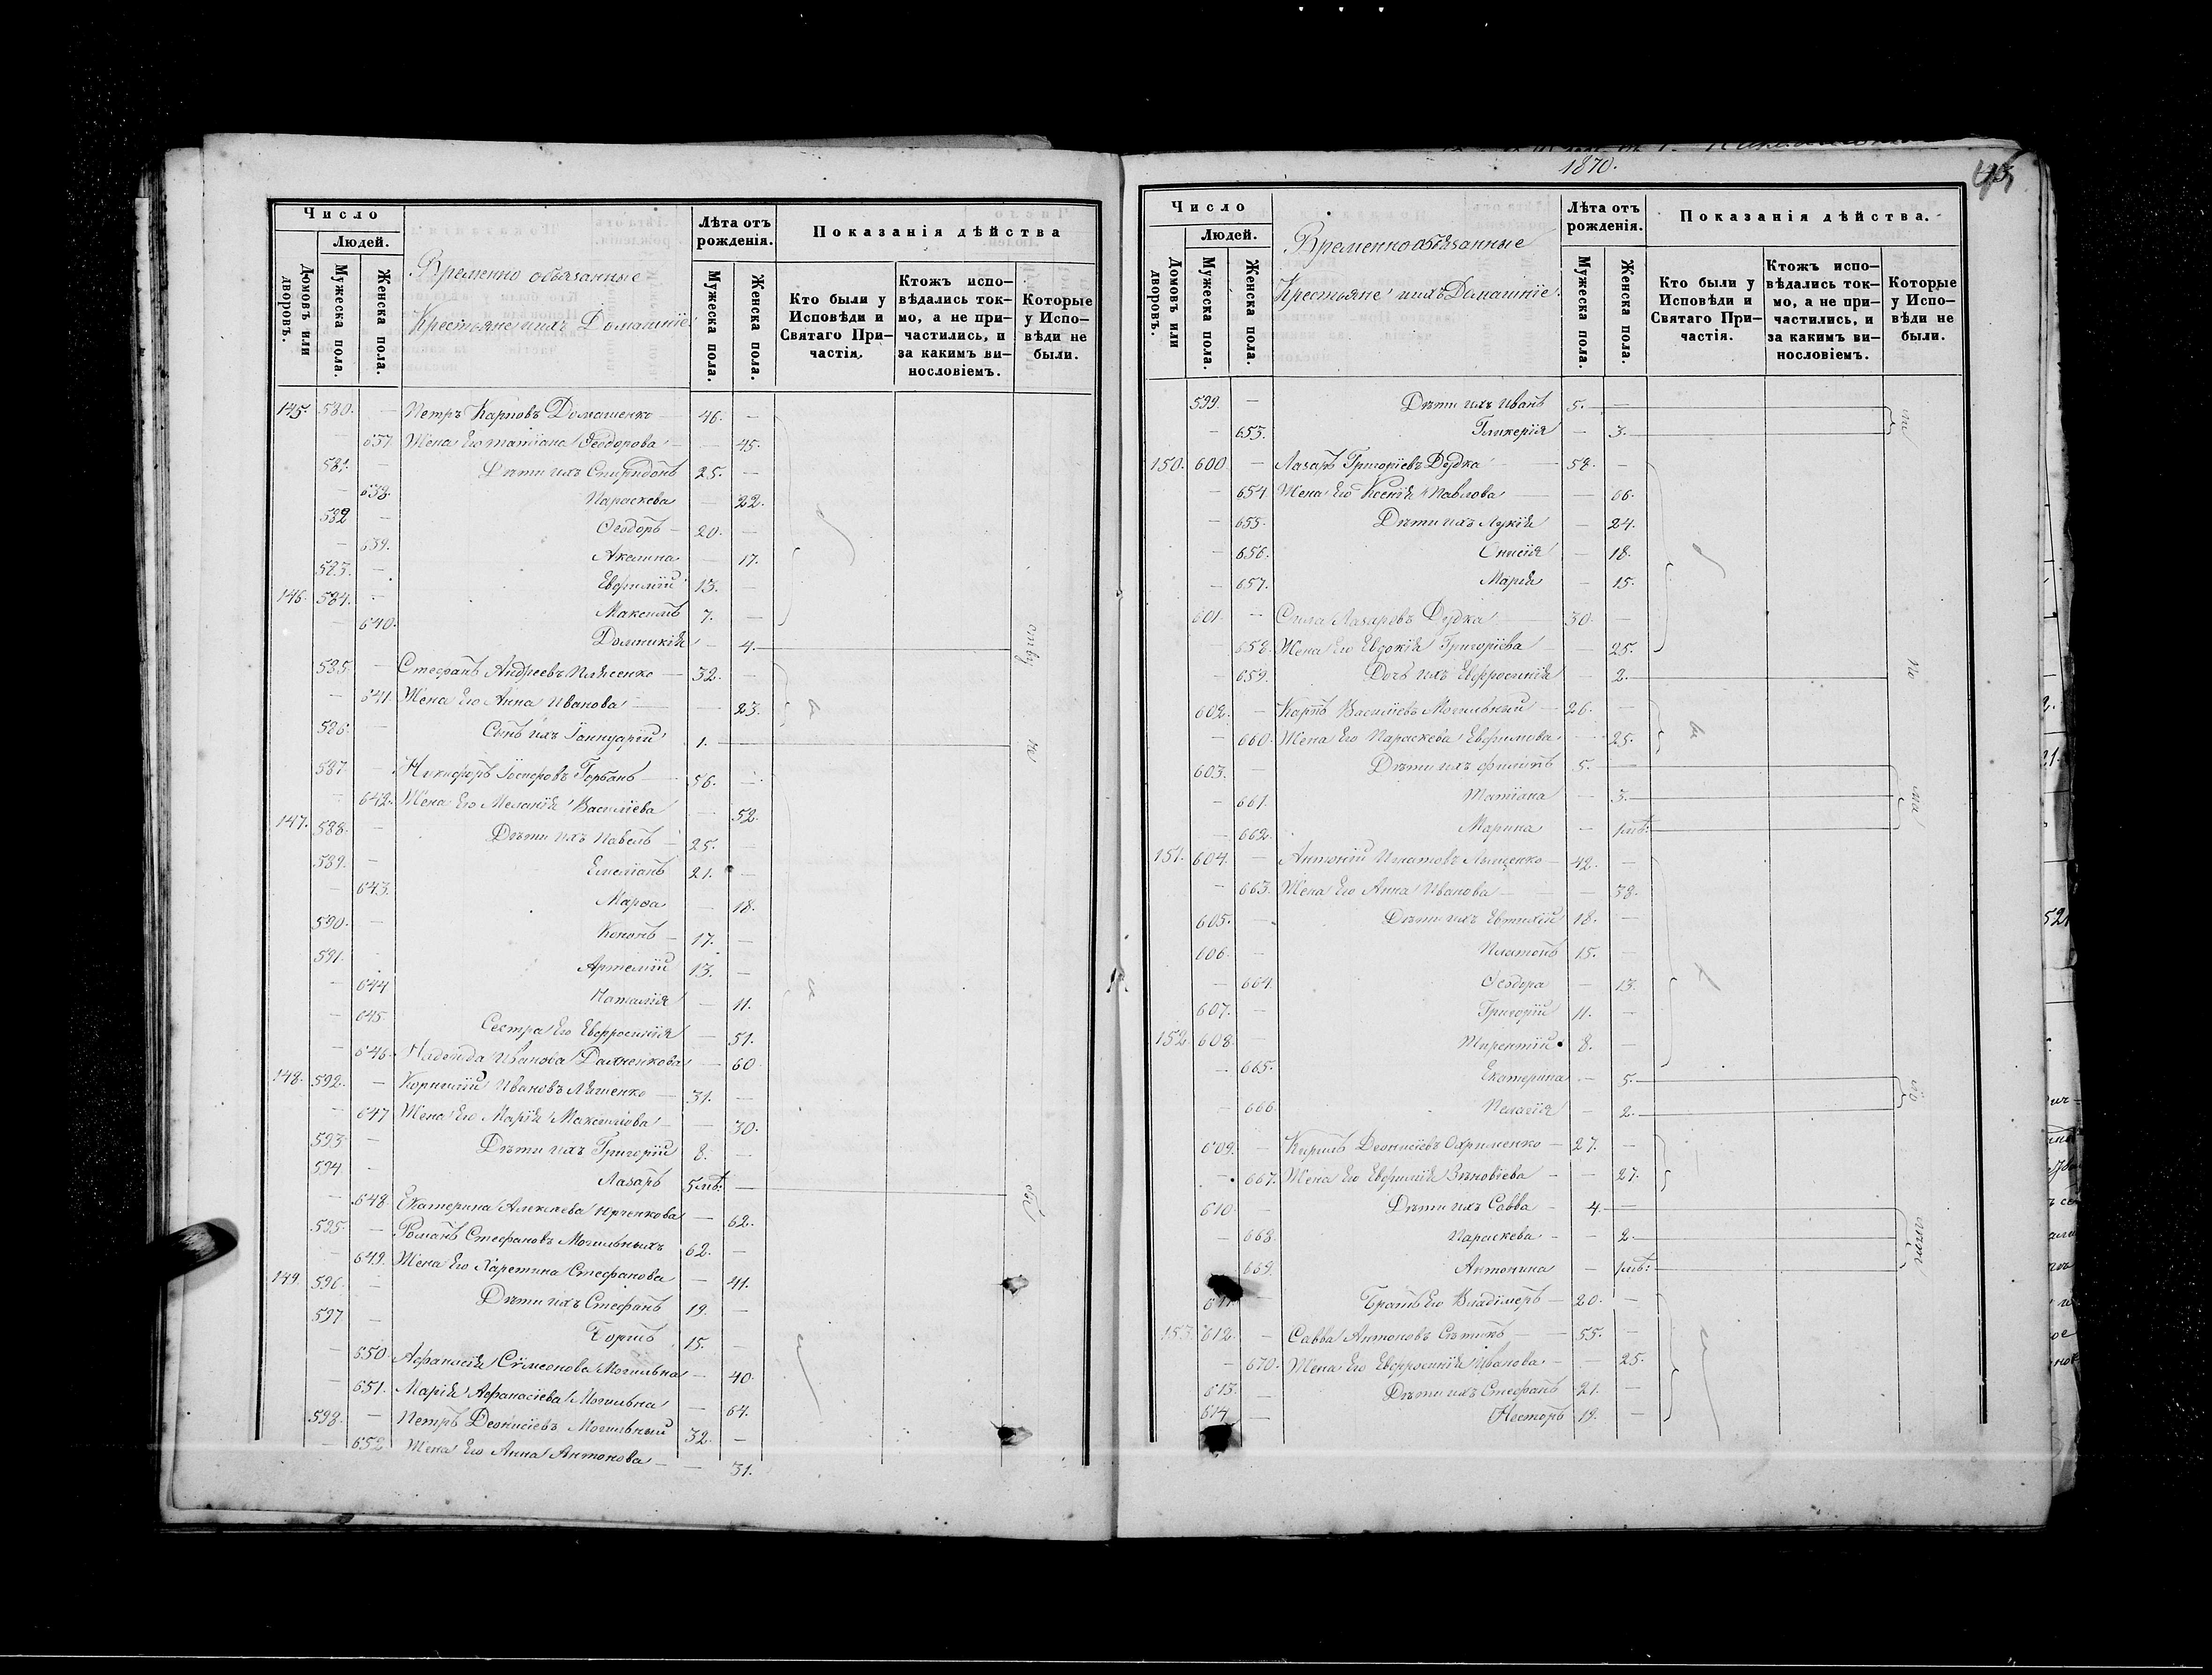 Число
Людей.
Домовъ или дворовъ.
Мужеска пола.
Женска пола.
Временно обязанные
Крестьяне и ихъ Домашніе
Лѣта отъ рожденія.
Мужеска пола.
Женска пола.
Показанія дѣйства
Кто были у Исповѣди и Святаго Причастія.
Ктожъ исповѣдались токмо, а не причастились, и за какимъ винословіемъ.
Которые у Исповѣди не были.
145. 580. — Петръ Карповъ Домашенко 46. —
— 637 Жена Его Татіана Ѳеодорова — 45.
581. — Дѣти ихъ Спиридонъ 25. —
— 638. Параскева — 22.
582 — Ѳеодоръ 20. —
— 639. Акелина — 17.
583. — Евфимій 13. —
146. 584. — Максимъ 7. —
— 640. Домникія — 4.
585. — Стефанъ Андреевъ 32. —
— 641 Жена Его Анна Иванова — 23.
586. — Сынъ ихъ Іаннуарій 1.
587 — Никифоръ Іосифовъ Горбань 56. —
— 642. Жена Его Меланія Василіева — 52.
147. 588. — Дѣти ихъ Павелъ 25. —
589. — Емеліанъ 21. —
— 643. Марѳа — 18.
590. — Кононъ 17. —
591. — Артемій 13. —
— 644 Наталія — 11.
— 645. Сестра Его Евфросинія — 51.
— 646. Надежда Иванова — 60
148. 592. — Корнилій Ивановъ Ляшенко 31. —
— 647 Жена Его Марія Максимова — 30.
593. — Дѣти ихъ Григорій 8. —
594 — Лазарь 5 мѣ: —
— 648 Екатерина Алексѣева Юрченкова — 62.
595. — Романъ Стефановъ Могильныхъ 62. —
— 649. Жена Его Харетина Стефанова — 41.
149. 596. — Дѣти ихъ Стефанъ 19. —
597 — Борисъ 15. —
— 650. Афанасія Сѵмеонова Могильна — 40.
— 651. Марія Афанасіева Могильна — 64.
598. — Петръ Деонисіевъ Могильный 32. —
— 652 Жена Его Анна Антонова — 31.
1870.
Число
Людей.
Домовъ или дворовъ.
Мужеска пола.
Женска пола.
Временнообязанные
Крестьяне и ихъ Домашніе.
Лѣта отъ рожденія.
Мужеска пола.
Женска пола.
Показанія дѣйства.
Кто были у Исповѣди и Святаго Причастія.
Ктожъ исповѣдались токмо, а не причастились, и за какимъ винословіемъ.
Которые у Исповѣди не были.
599. — Дѣти ихъ Иванъ 5. —
— 653. Гликерія — 3.
150. 600 — Лазарь Григоріевъ Дудка 58. —
— 654. Жена Его Ксенія Павлова — 66.
— 655. Дѣти ихъ Лукія — 24.
— 656. Онисія — 18.
— 657. Марія — 15.
601. — Сила Лазаровъ Дудка 30. —
658. Жена Его Евдокія Григоріева — 25.
— 659. Дочь ихъ Евфросинія — 2.
602. — Карпъ Василіевъ Могильный 26. —
— 660. Жена Его Параскева Евфимова — 25.
603. — Дѣти ихъ Филипъ 5. —
— 661. Татіана — 3.
— 662. Марина — 1 мѣ:
151. 604. — Антоній Игнатовъ Лященко 42. —
— 663. Жена Его Анна Иванова — 38.
605. — Дѣти ихъ Евтихій 18. —
606. — Платонъ 15. —
— 664. Ѳеодора — 13.
607. — Григорій 11. —
152. 608. — Терентій 8. —
— 665. Екатерина — 5.
— 666. Пелагія — 2.
609. — Кирилъ Деонисіевъ Охрименко 27. —
667. Жена Его Евфимія Зѣновіева — 27.
610. — Дѣти ихъ Савва 4. —
— 668. Параскева — 2.
669. Антонина — 1 мѣ:
611. — Братъ Его Владіміръ 20. —
153. 612. — Савва Антоновъ 55. —
— 670. Жена Его Евфросинія Иванова — 25.
613. — Дѣти ихъ Стефанъ 21. —
614 — Несторъ 19. —